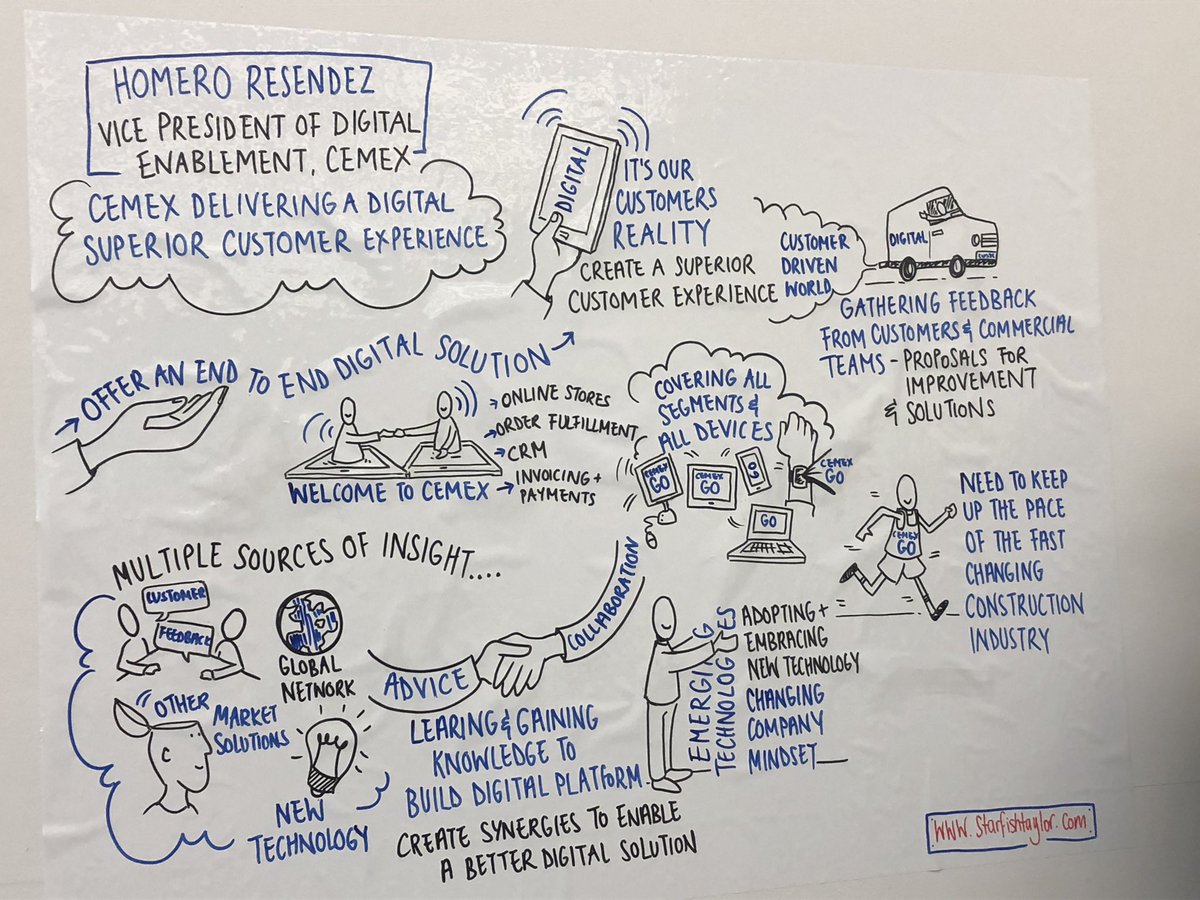 HOMERO RESENDEZ
VICE PRESIDENT OF DIGITAL
ENABLEMENT, CEMEX
CEMEX DELIVERING A DIGITAL
SUPERIOR CUSTOMER EXPERIENCE
DIGITAL
IT'S OUR
CUSTOMERS
REALITY
CREATE A SUPERIOR
CUSTOMER EXPERIENCE
CUSTOMER
DRIVEN
WORLD
DIGITAL
GATHERING FEEDBACK
FROM CUSTOMERS & COMMERCIAL
TEAMS - PROPOSALS FOR
IMPROVEMENT
& SOLUTIONS
→ OFFER AN END TO END DIGITAL SOLUTION →
WELCOME TO CEMEX
→ ONLINE STORES
→ ORDER FULFILLMENT
→ CRM
→ INVOICING +
PAYMENTS
COVERING ALL
SEGMENTS &
ALL DEVICES
CEMEX
GO
CEMEX
GO
GO
GO
CEMEX
GO
CEMEX
GO
NEED TO KEEP
UP THE PACE
OF THE FAST
CHANGING
CONSTRUCTION
INDUSTRY
MULTIPLE SOURCES OF INSIGHT....
CUSTOMER
FEEDBACK
GLOBAL
NETWORK
OTHER
MARKET
SOLUTIONS
NEW
TECHNOLOGY
ADVICE
COLLABORATION
LEARING & GAINING
KNOWLEDGE TO
BUILD DIGITAL PLATFORM
CREATE SYNERGIES TO ENABLE
A BETTER DIGITAL SOLUTION
EMERGING
TECHNOLOGIES
ADOPTING +
EMBRACING
NEW TECHNOLOGY
CHANGING
COMPANY
MINDSET
www.starfishtaylor.com